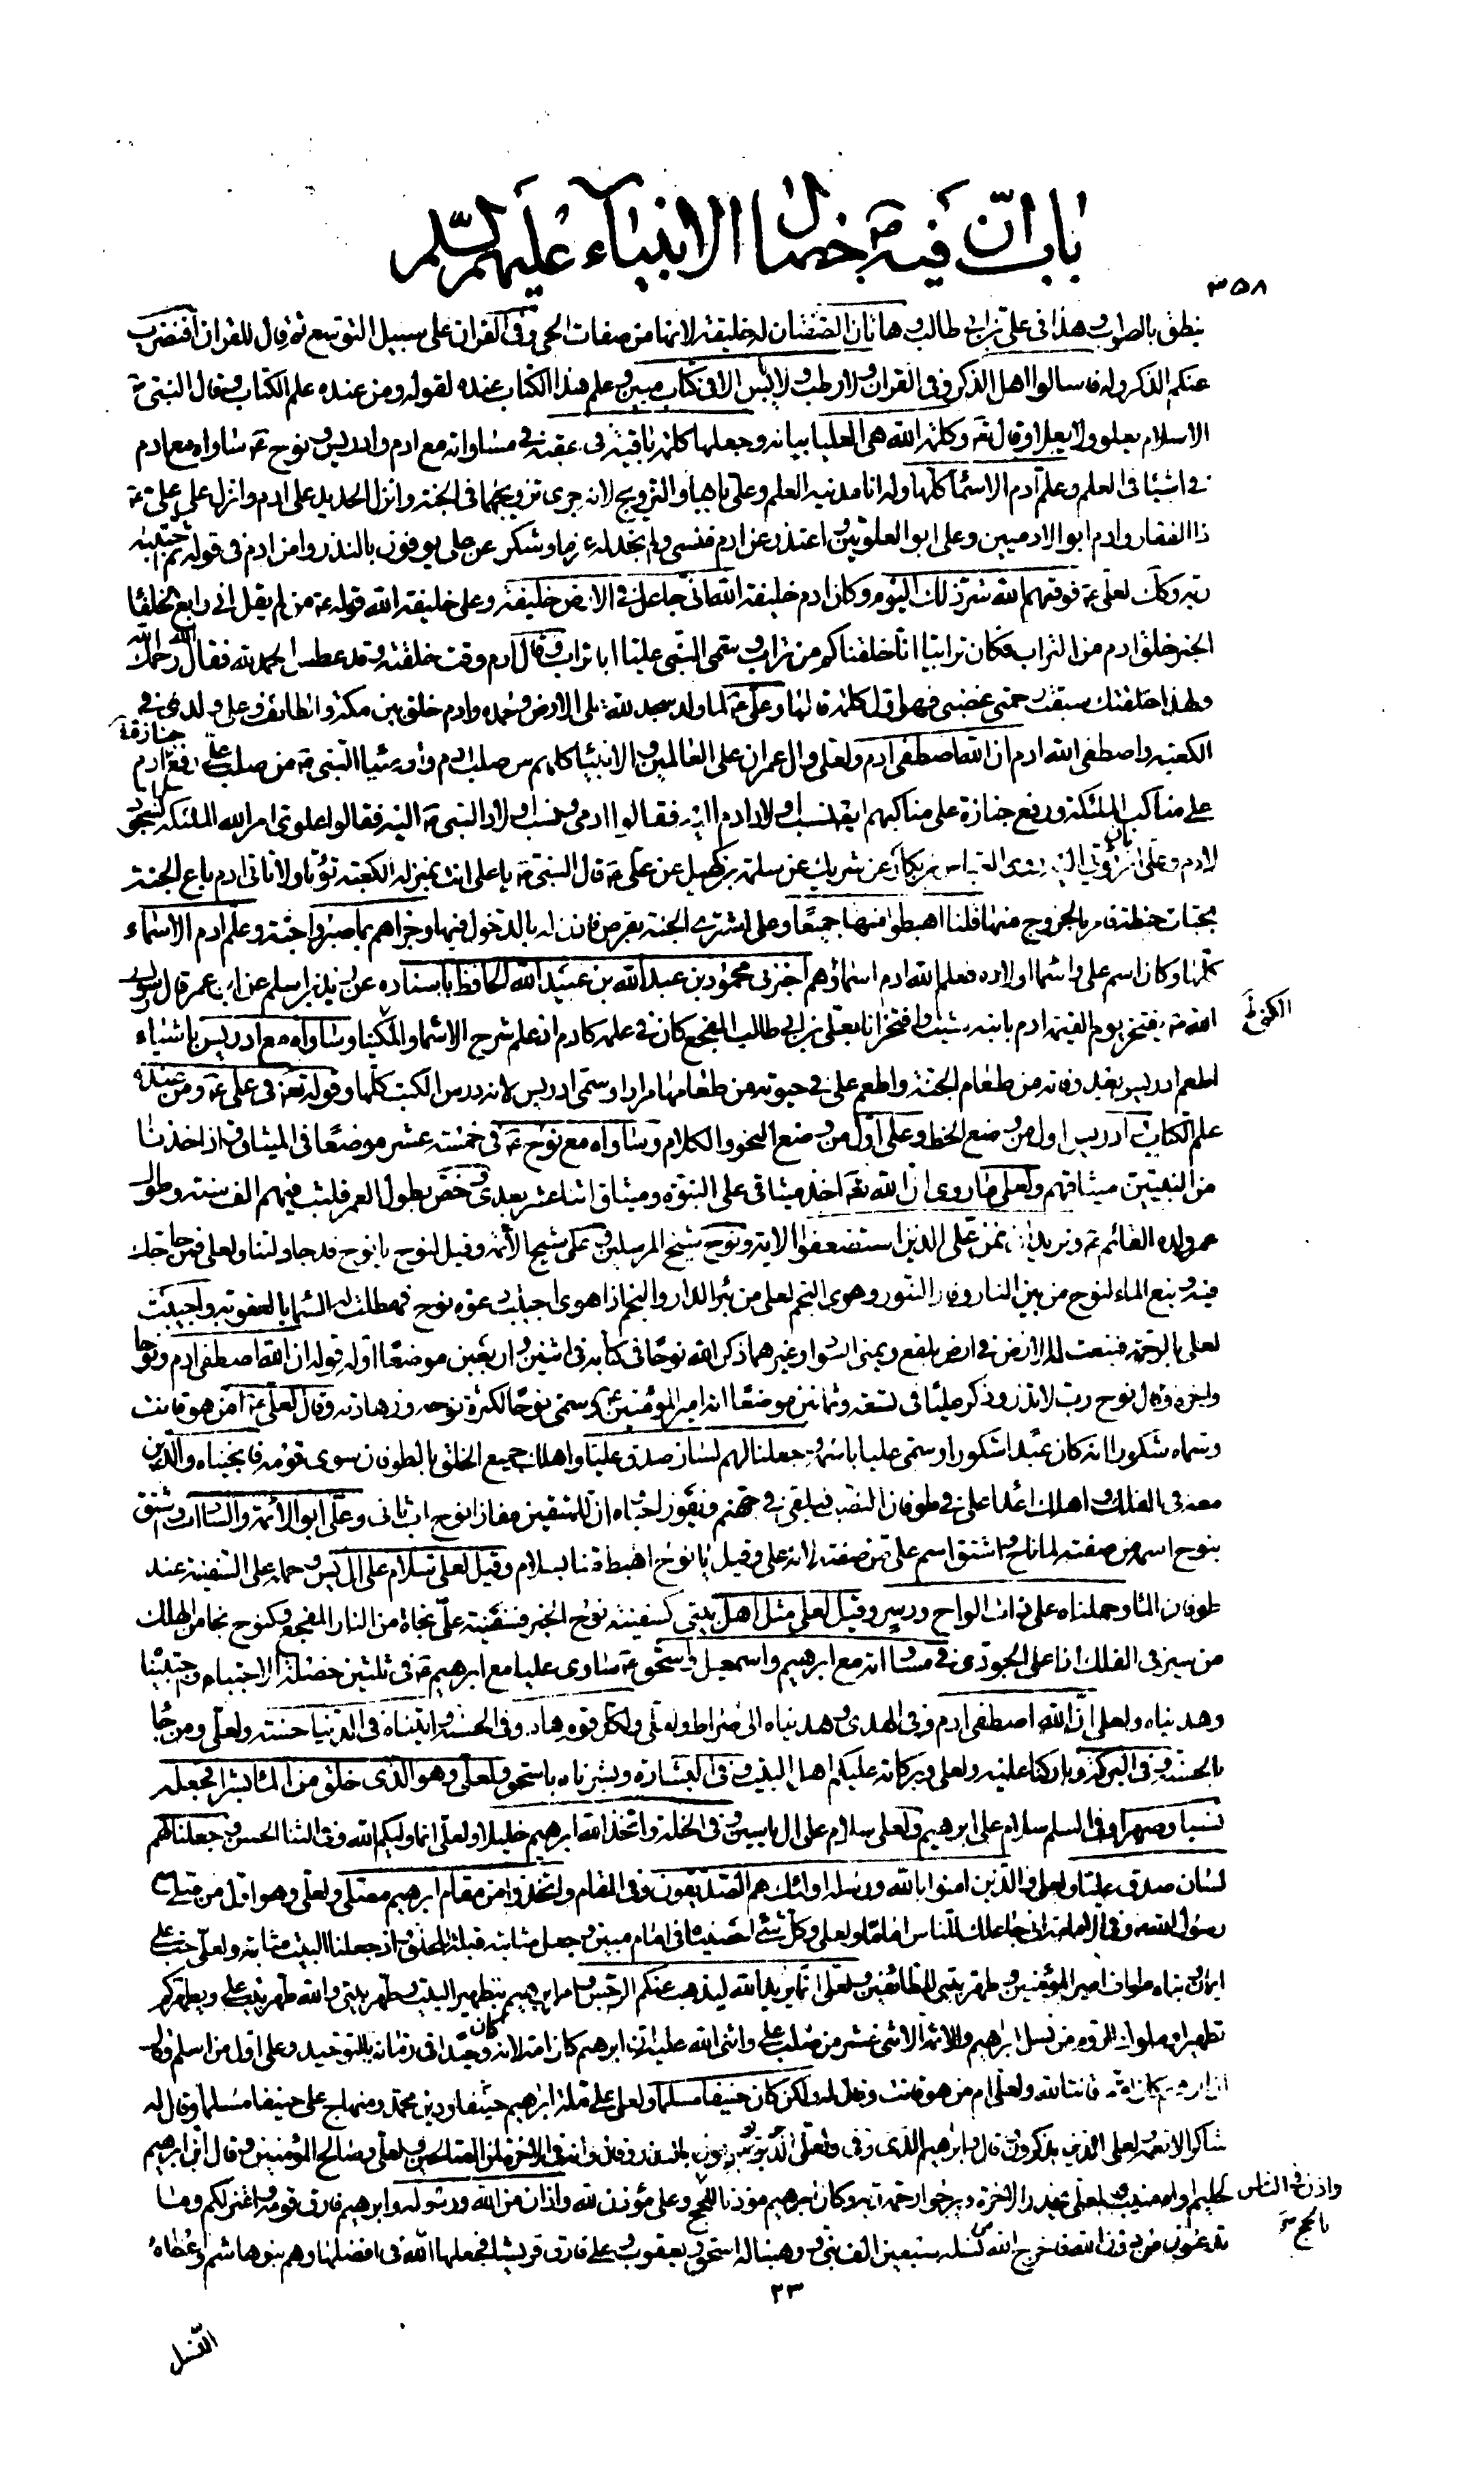 باب ان فيه خصال الانبياء عليهم السلم
٣٥٨
ينطق بالصواب وهذا في علي بن ابي طالب وهاتان الصفتان له خليقة لانها من صفات الحي وفي القران على سبيل التوسع ثم قال للقران افنضرب
عنكم الذكر وله فاسالوا اهل الذكر وفي القران ولا رطب ولا يابس الا في كتاب مبين وعلم هذا الكتاب عنده لقوله ومن عنده علم الكتاب وقال النبي ص
الاسلام يعلو ولا يعلا وقال تع وكلمة الله هي العليا بيانه وجعلها كلمة باقية في عقبه في مساواته مع ادم وادريس ونوح ع ساواه مع ادم
في اشياء في العلم وعلم ادم الاسماء كلها وله انا مدينة العلم وعلي بابها والتزويج لانه جرى تزويجهما في الجنة وانزل الحديد على ادم وانزل على علي ع
ذا الفقار وادم ابو الادميين وعلي ابو العلويين واعتذر عن ادم فنسي ولم نجد له عزما وشكر عن علي يوفون بالنذر وامن ادم في قوله ثم اجتبيه
ربه وكذلك لعلي ع فوقيهم الله شر ذلك اليوم وكان ادم خليفة الله اني جاعل في الارض خليفة وعلي خليفة الله قوله ع من لم يقل اني رابع الخلفاء
الخبر خلق ادم من التراب فكان ترابيا انا خلقناكم من تراب وسمى النبي عليا ابا تراب وقال ادم وقت خلقته وقد عطس الحمد لله فقال الله رحمك الله
ولهذا خلقتك سبقت رحمتي غضبي فهو اول كلمة قالها وعلي ع لما ولد سجد لله على الارض وحمده وادم خلق بين مكة والطائف وعلي ولد في
الكعبة واصطفى الله ادم ان الله اصطفى ادم ولعلي وال عمران على العالمين والانبياء كلهم من صلب ادم واوصياء النبي ص من صلب علي رفع جنازة ادم
على مناكب الملئكة ورفع جنازة علي على مناكبهم ينسب اولاد ادم اليه فقالوا ادمي وينسب اولاد النبي ص اليه فقالوا علوي امر الله الملئكة بالسجود
لادم وعلي عن شريك عن سلمة بن كهيل عن علي ع قال النبي ص يا علي انت بمنزلة الكعبة تؤتى ولا تأتي ادم باع الجنة
بحبات حنطة فامر بالخروج منها قلنا اهبطوا منها جميعا وعلي اشترى الجنة بقرص فاذن له بالدخول فيها وجزاهم بما صبروا جنة وعلم ادم الاسماء
كلها وكان اسم علي واسماء اولاده فعلم الله ادم اسماؤهم اخبرني محمود بن عبد الله بن عبيد الله الحافظ باسناده عن زيد بن اسلم عن ابن عمر قال رسول
الله ص يفتخر يوم القيمة ادم بابنه شيث وافتخر انا بعلي بن ابي طالب المفجع كان في علمه كادم اذ علم شرح الاسماء والمكنيا وساواه مع ادريس باشياء
المكني خ
اطعم ادريس بعد وفاته من طعام الجنة واطعم علي في حيوته من طعامها مرارا وسمي ادريس لانه درس الكتب كلها وقوله تع في علي ع ومن عنده
علم الكتاب ادريس اول من وضع الخط وعلي اول من وضع النحو والكلام وساواه مع نوح ع في خمسة عشر موضعا في الميثاق واذ اخذنا
من النبيين ميثاقهم ولعلي ما روي ان الله تعا اخذ ميثاقي على النبوة وميثاق اثنا عشر بعدي وخص بطول العمر فلبث فيهم الف سنة وطول
عمر ولده القائم ع ونريد ان نمن على الذين استضعفوا الاية ونوح شيخ المرسلين وعلي شيخ الائمة وقيل لنوح يا نوح قد جادلتنا ولعلي فمن حاجك
فيه نبع الماء لنوح من بين النار وفار التنور وهوى النجم لعلي من بئر الدار والنجم اذا هوى اجيبت دعوة نوح فهطلت له السماء بالعقوبة واجيبت
لعلي بالرحمة فنبعت له الارض في ارض بلقع ويمنى السواد وغيرهما ذكر الله نوحا في كتابه في اثنين واربعين موضعا اوله قوله ان الله اصطفى ادم ونوحا
واخره وقال نوح رب لا تذر وذكر عليا في تسعة وثمانين موضعا انه امير المؤمنين ع وسمي نوحا لكثرة نوحه وزهادته وقال لعلي ع امن هو قانت
وسماه شكورا انه كان عبدا شكورا وسمى عليا باسمه وجعلنا لهم لسان صدق عليا واهلك جميع الخلق بالطوفان سوى قومه فانجيناه والذين
معه في الفلك واهلك اعداء علي في طوفان النصب فيلقى في جهنم ويفوز احباه ان للمتقين مفازا نوح اب ثاني وعلي ابو الائمة والسادات واشتق
بنوح اسمه من صفته لما ناح واشتق اسم علي من صفته لانه علي وقيل يا نوح اهبط منا بسلام وقيل لعلي سلام على ال يس وحمله على السفينة عند
طوفان الماء وحملناه على ذات الواح ودسر وقيل لعلي مثل اهل بيتي كسفينة نوح الخبر فسفينة علي نجاة من النار المفجع وكنوح نجا من الهلك
من سير في الفلك اذ علا الجودي في مساواته مع ابرهيم واسمعيل واسحق ع ساوى عليا مع ابرهيم ع في ثلثين خصلة الاجتباء واجتبيناه
وهديناه ولعلي ان الله اصطفى ادم وفي الهدى وهديناه الى صراط ولعلي ولكل قوم هاد وفي الحسنة واتيناه في الدنيا حسنة ولعلي ومن جاء
بالحسنة وفي البركة وباركنا عليه ولعلي وبركاته عليكم اهل البيت وفي البشارة وبشرناه باسحق ولعلي وهو الذي خلق من الماء بشرا فجعله
نسبا وصهرا وفي السلم سلام على ابرهيم ولعلي سلام على ال ياسين وفي الخلة واتخذ الله ابرهيم خليلا ولعلي انما وليكم الله وفي الثنا الحسن وجعلنا لهم
لسان صدق عليا ولعلي والذين امنوا بالله ورسله اولئك هم الصديقون وفي المقام واتخذوا من مقام ابرهيم مصلى ولعلي وهو اول من صلى مع
رسول الله ص وفي الامامة اني جاعلك للناس اماما ولعلي وكل شيء احصيناه في امام مبين وجعل مثابته قبلة للخلق واذ جعلنا البيت مثابة ولعلي حب علي
ايمان طواف امير المؤمنين وطهر بيتي للطائفين ولعلي انما يريد الله ليذهب عنكم الرجس وامر ابرهيم بتطهير البيت وطهر بيتي والله طهر بيت علي ويطهركم
تطهيرا وملوك الروم من نسل ابرهيم والائمة الاثنى عشر من صلب علي واثنى الله عليه ان ابرهيم كان امة لانه كان وحيدا في زمانه بالتوحيد وعلي اول من اسلم وقال
ان ابرهيم كان امة قانتا لله ولعلي امن هو قانت وقال له ولكن كان حنيفا مسلما ولعلي على ملة ابرهيم حنيفا ودين محمد ومنهاج علي حنيفا مسلما وقال له
شاكرا لانعمه ولعلي الذين يذكرون وقال وابرهيم الذي وفى ولعلي الذين يوفون بالنذر وقال وانه في الاخرة لمن الصالحين ولعلي وصالح المؤمنين وقال ان ابرهيم
لحليم اواه منيب ولعلي يحذر الاخرة ويرجوا رحمة ربه وكان ابرهيم مؤذنا للحج وعلي مؤذن لله واذان من الله ورسوله وابرهيم فارق قومه واعتزلكم وما
واذن في الناس
بالحج صح
تدعون من دون الله فاخرج الله من نسله سبعين الف نبي ووهبنا له اسحق ويعقوب وعلي فارق قريشا فجعلها الله في افضلها وهم بنو هاشم واعطاه
٢٣
النسل